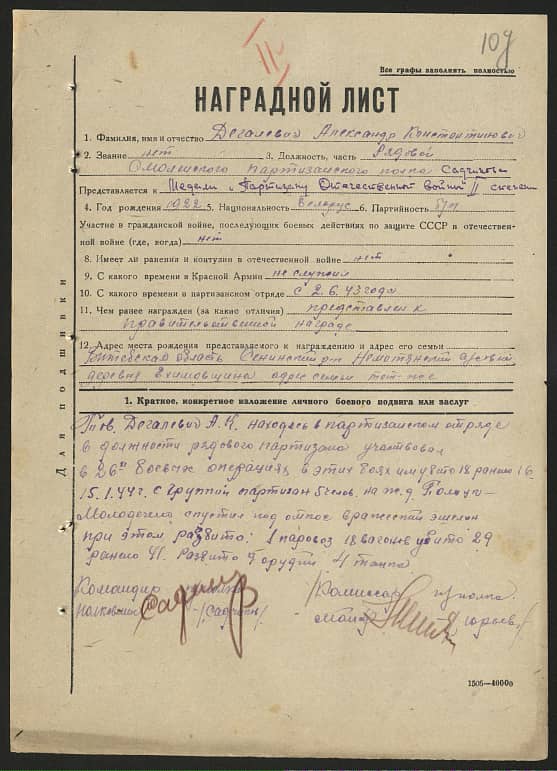 II
109
Все графы заполнять полностью
НАГРАДНОЙ ЛИСТ
1. Фамилия, имя и отчество Дегалевич Александр Константинович
2. Звание нет 3. Должность, часть Рядовой
Смоленского партизанского полка Садчикова
Представляется к Медали „Партизану Отечественной войны" II степени
4. Год рождения 1922 5. Национальность Белорус 6. Партийность б/п
Участие в гражданской войне, последующих боевых действиях по защите СССР в отечествен-
ной войне (где, когда) нет
8. Имеет ли ранения и контузии в отечественной войне нет
9. С какого времени в Красной Армии не служил
10. С какого времени в партизанском отряде с 2.6.43 года
11. Чем ранее награжден (за какие отличия) представлен к
правительственной награде
12. Адрес места рождения представляемого к награждению и адрес его семьи
Витебская область Сенинский р-н Немойтянский
деревня Ехимовщина адрес семьи тот-же
Для подшивки
1. Краткое, конкретное изложение личного боевого подвига или заслуг
Тов. Дегалевич А.К. находясь в партизанском отряде
в должности рядового партизана участвовал
в 26и боевых операциях, в этих боях им убито 18 ранено 16
15.1.44 г. с группой партизан 5 челов. на ж.д. Полоцк-
Молодечно спустил под откос вражеский эшелон
при этом разбито: 1 паровоз 18 вагонов убито 29
ранено 41. Разбито 9 орудий 4 танка
Командир полка /Комиссар полка
Полковник /Садчиков/ Майор Юрьев/
1505—40000